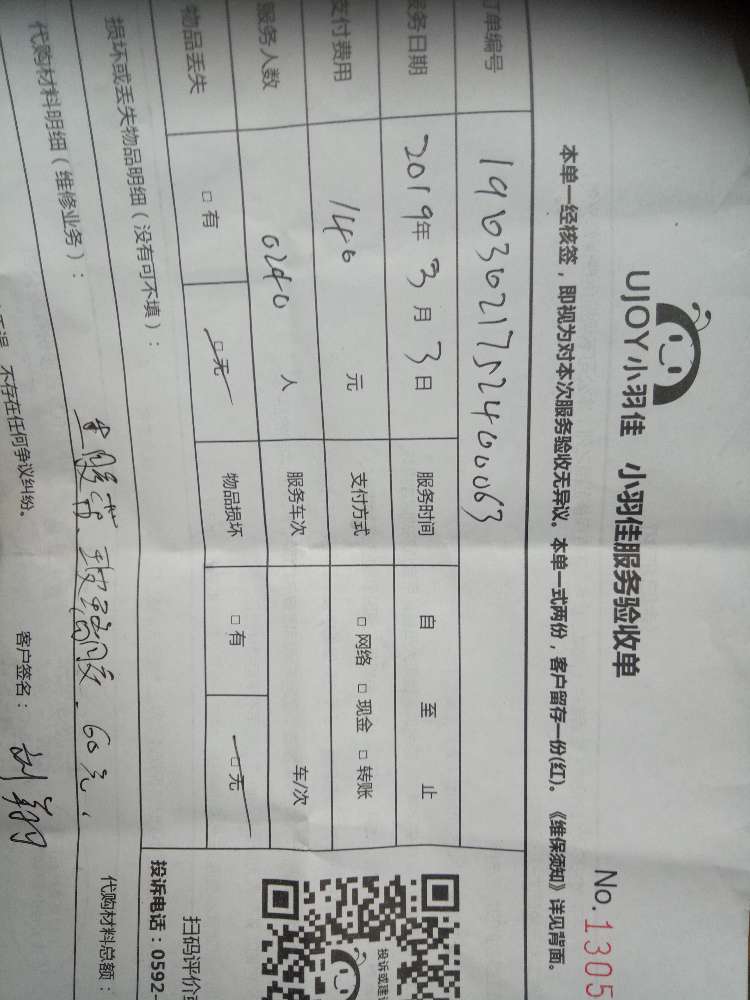 UJOY小羽佳 小羽佳服务验收单
No.1305
本单一经核签，即视为对本次服务验收无异议。本单一式两份，客户留存一份(红)。《维保须知》详见背面。
订单编号 1903021752400063
服务日期 2019年3月3日 服务时间 自 至 止
支付费用 140 元 支付方式 □ 网络 □ 现金 □ 转账
服务人数 0240 人 服务车次 车/次
物品丢失 □ 有 □ 无 物品损坏 □ 有 □ 无
损坏或丢失物品明细（没有可不填）：
代购材料明细（维修业务）：
60元.
代购材料总额：
不存在任何争议纠纷。
客户签名：
投诉或建议
扫码评价
投诉电话：0592-